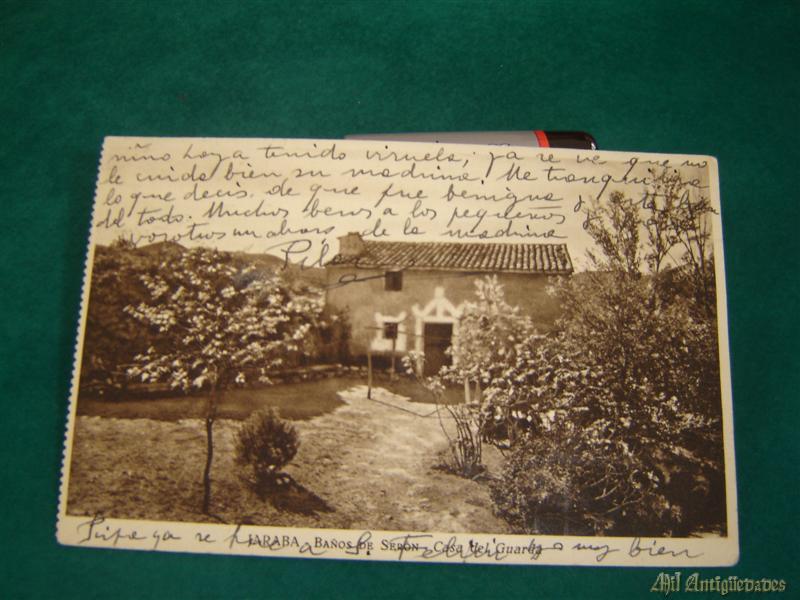 niño haya tenido viruela; ya se ve que no
le cuida bien su madrina. Me tranquiliza
lo que decis, de que fue benigna y esta bien
del todo. Muchos besos a los pequeños
y vosotros un abrazo de la madrina
Pilar
Pipe ya se fue a S. muy bien
JARABA - BAÑOS DE SERÓN - Casa del Guarda
Mil Antigüedades